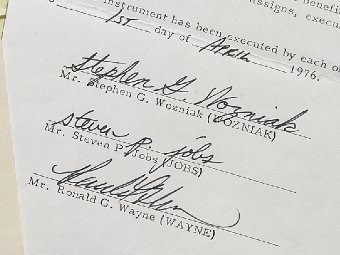 benefi
assigns, execu
instrument has been executed by each o
1ST day of APRIL 1976.
Stephen G. Wozniak
Mr. Stephen G. Wozniak (WOZNIAK)
steven p. jobs
Mr. Steven P. Jobs (JOBS)
Mr. Ronald G. Wayne (WAYNE)